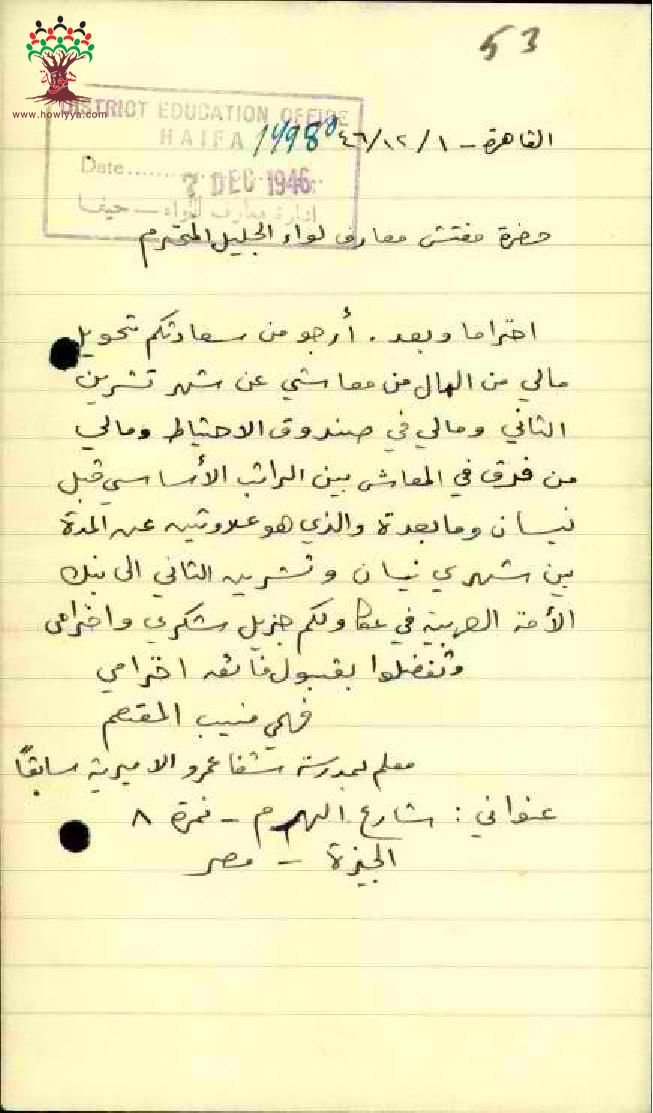 53
www.howiyya.com
DISTRICT EDUCATION OFFICE
HAIFA
Date
7 DEC 1946
ادارة معارف اللواء — حيفا
القاهرة - ٤٦/١٢/١
حضرة مفتش معارف لواء الجليل المحترم
احتراما وبعد . أرجو من سعادتكم تحويل
مالي من المال من معاشي عن شهر تشرين
الثاني ومالي في صندوق الاحتياط ومالي
من فرق في المعاش بين الراتب الأساسي قبل
نيسان وما بعدة والذي هو علاوتين عن المدة
بين شهري نيسان وتشرين الثاني الى بنك
الأمة العربية في عكا ولكم جزيل شكري واحترامي
وتفضلوا بقبول فائق احترامي
فهمي منيب
معلم بمدرسة شفا عمرو الاميرية سابقاً
عنواني : شارع الهرم - نمرة ٨
الجيزة - مصر